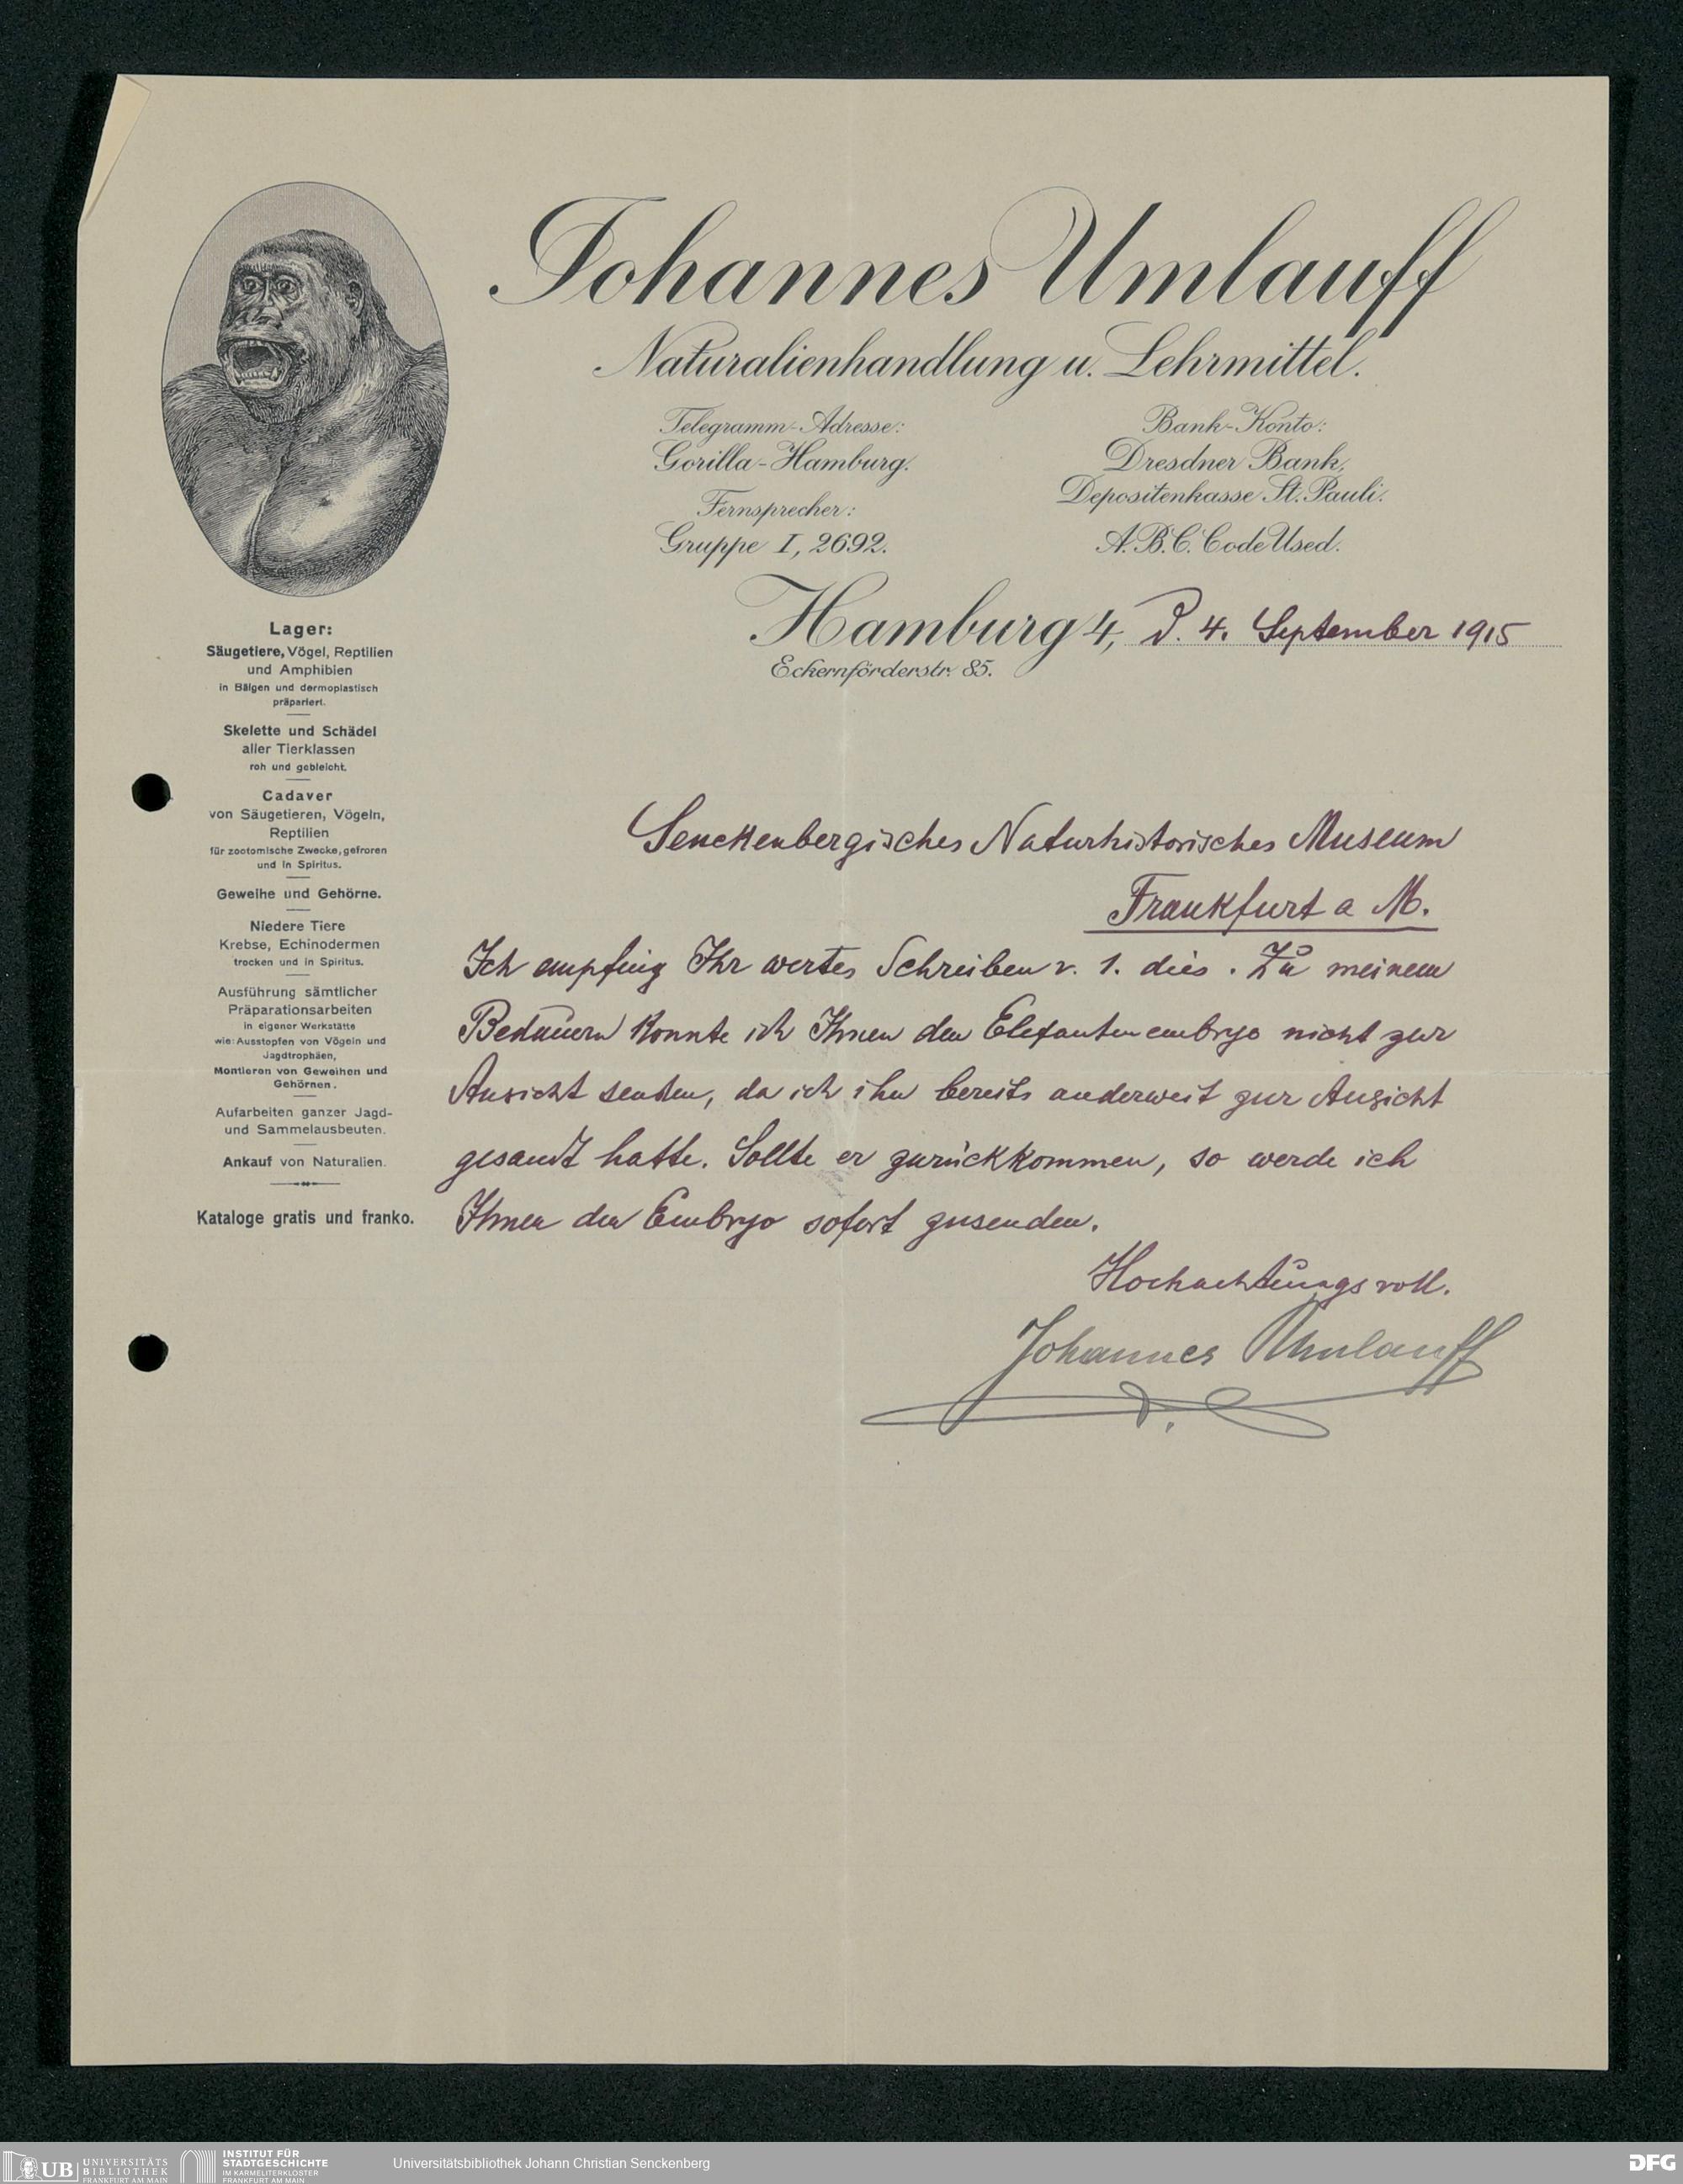 Johannes Umlauff
Naturalienhandlung u. Lehrmittel.
Telegramm-Adresse:
Gorilla-Hamburg.
Fernsprecher:
Gruppe I, 2692.
Bank-Konto:
Dresdner Bank,
Depositenkasse St. Pauli.
A.B.C. Code Used.
Hamburg 4, d. 4. September 1915
Eckernförderstr. 85.
Lager:
Säugetiere, Vögel, Reptilien
und Amphibien
in Bälgen und dermoplastisch
präpariert.
Skelette und Schädel
aller Tierklassen
roh und gebleicht.
Cadaver
von Säugetieren, Vögeln,
Reptilien
für zootomische Zwecke, gefroren
und in Spiritus.
Geweihe und Gehörne.
Niedere Tiere
Krebse, Echinodermen
trocken und in Spiritus.
Ausführung sämtlicher
Präparationsarbeiten
in eigener Werkstätte
wie: Ausstopfen von Vögeln und
Jagdtrophäen,
Montieren von Geweihen und
Gehörnen.
Aufarbeiten ganzer Jagd-
und Sammelausbeuten.
Ankauf von Naturalien.
Kataloge gratis und franko.
Senckenbergisches Naturhistorisches Museum
Frankfurt a M.
Ich empfing Ihr wertes Schreiben v. 1. dies. Zu meinem
Bedauern konnte ich Ihnen den Elefantenembryo nicht zur
Ansicht senden, da ich ihn bereits anderweit zur Ansicht
gesandt hatte. Sollte er zurückkommen, so werde ich
Ihnen den Embryo sofort zusenden.
Hochachtungsvoll.
Johannes Umlauff
UB UNIVERSITÄTS
BIBLIOTHEK
FRANKFURT AM MAIN
INSTITUT FÜR
STADTGESCHICHTE
IM KARMELITERKLOSTER
FRANKFURT AM MAIN
Universitätsbibliothek Johann Christian Senckenberg
DFG